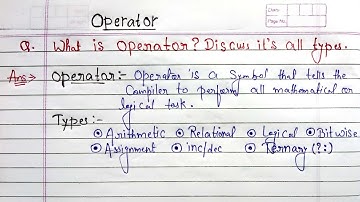 Date:
Page No.
Operator
Q. What is operator? Discus it's all types.
Ans:→ Operator:- Operator is a Symbol that tells the
Compiler to perform all mathematical or
logical task.
Types:-
Arithmetic Relational Logical Bitwise
Assignment inc/dec Ternary (?:)